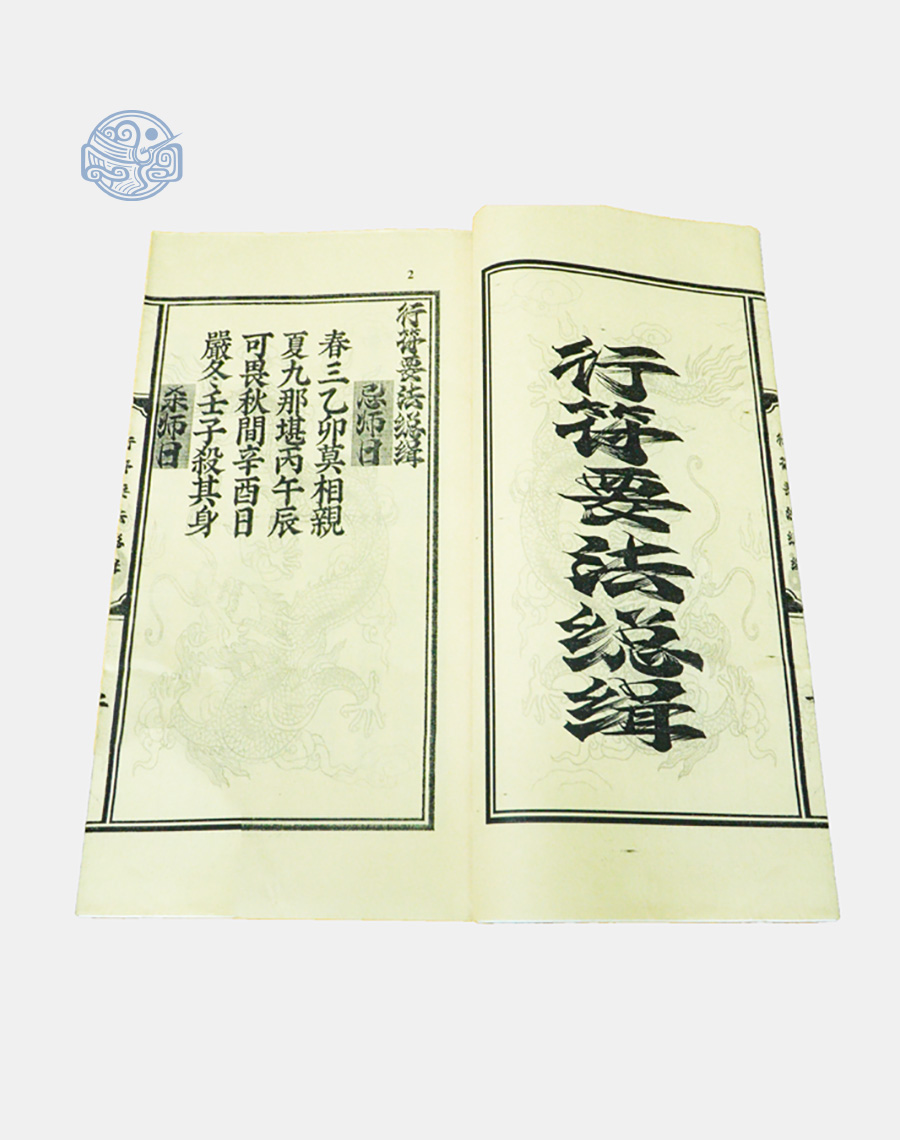 行符要法总缉
2
行符要法总缉
忌师日
春三乙卯莫相親
夏九那堪丙午辰
可畏秋間辛酉日
嚴冬壬子殺其身
杀师日
二